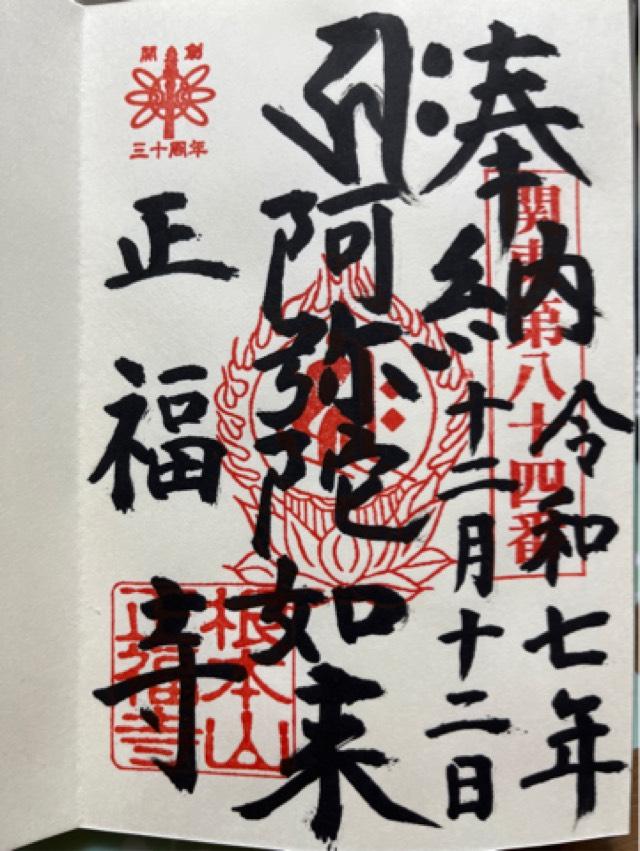 奉納
令和七年
十二月十二日
関東第八十四番
阿弥陀如来
正福寺
開創
三十周年
根本山
正福寺